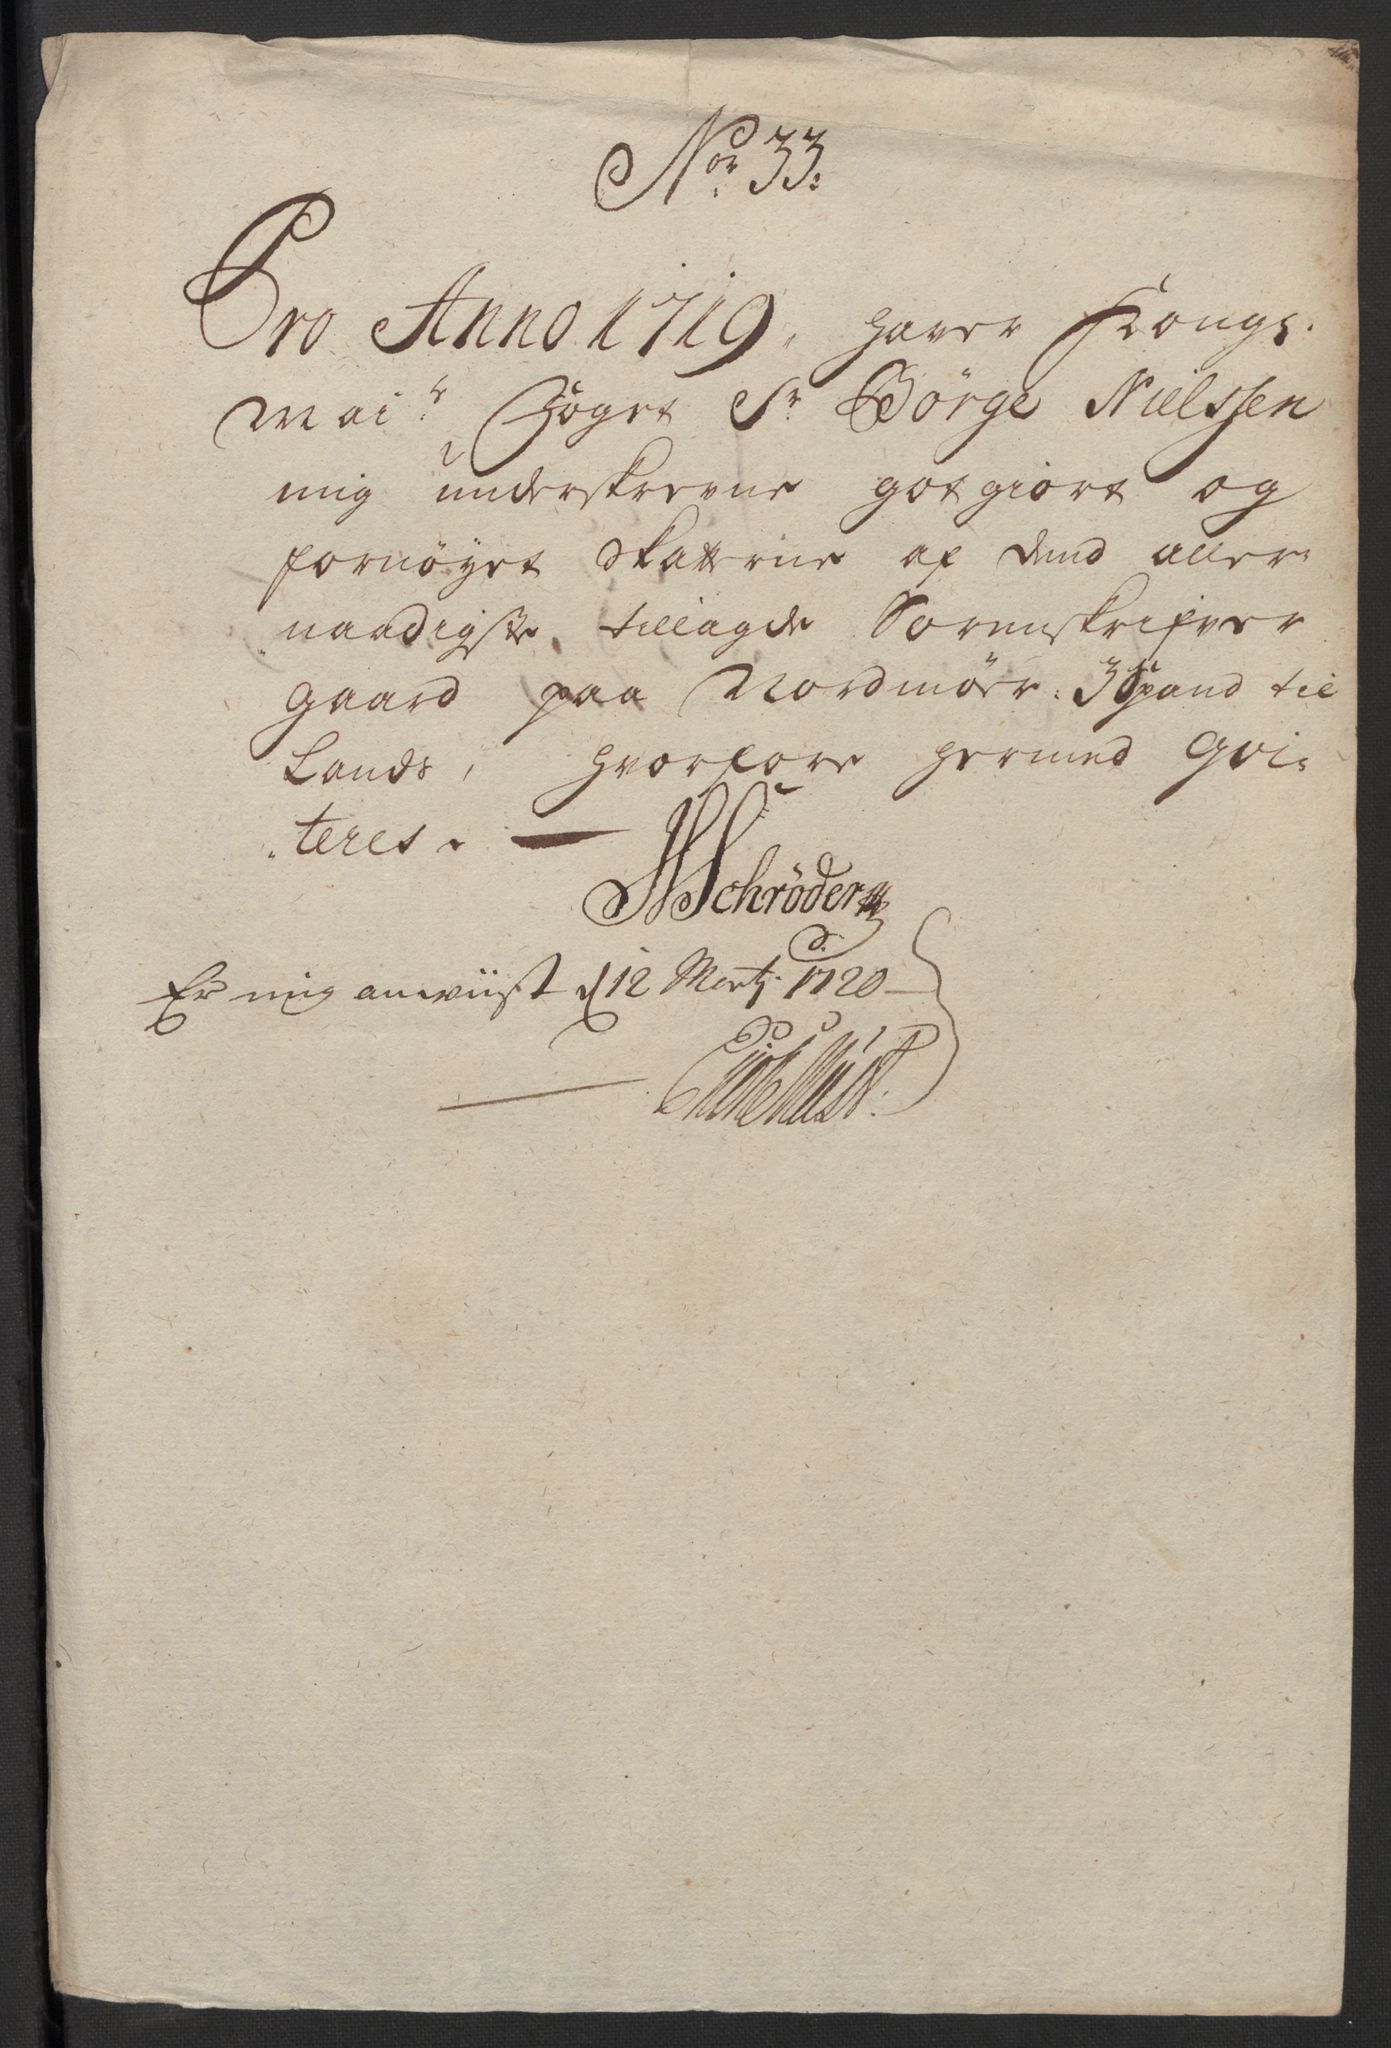 No: 33:
Pro Anno 1719, haver Kongs:
Mai: foget Sr Børge Nielssen
mig underskrevne godtgiort og
fornøyet Skatterne af dend aller-
naadigste tillagde Sorenskrifver
gaard paa Nordmöer: 3 Spand til
Lands, hvorfore hermed Qvi-
teres.
Schröder
Er mig anviist d 12 Martj 1720